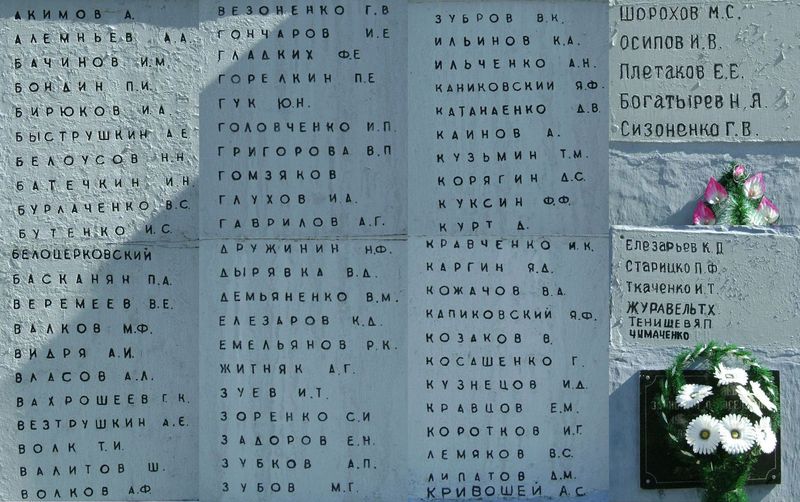 АКИМОВ А.
АЛЕМНЬЕВ А.А.
БАЧИНОВ И.М.
БОНДИН П.И.
БИРЮКОВ И.А.
БЫСТРУШКИН А.Е.
БЕЛОУСОВ Н.Н.
БАТЕЧКИН И.Н.
БУРЛАЧЕНКО В.С.
БУТЕНКО И.С.
БЕЛОЦЕРКОВСКИЙ
БАСКАНЯН П.А.
ВЕРЕМЕЕВ В.Е.
ВАЛКОВ М.Ф.
ВИДРЯ А.И.
ВЛАСОВ А.Л.
ВАХРОШЕЕВ Г.К.
ВЕЗТРУШКИН А.Е.
ВОЛК Т.И.
ВАЛИТОВ Ш.
ВОЛКОВ А.Ф.
ВЕЗОНЕНКО Г.В
ГОНЧАРОВ И.Е
ГЛАДКИХ Ф.Е
ГОРЕЛКИН П.Е
ГУК Ю.Н.
ГОЛОВЧЕНКО И.П.
ГРИГОРОВА В.П
ГОМЗЯКОВ
ГЛУХОВ И.А.
ГАВРИЛОВ А.Г.
ДРУЖИНИН Н.Ф.
ДЫРЯВКА В.Д.
ДЕМЬЯНЕНКО В.М.
ЕЛЕЗАРОВ К.Д.
ЕМЕЛЬЯНОВ Р.К.
ЖИТНЯК А.Г.
ЗУЕВ И.Т.
ЗОРЕНКО С.И
ЗАДОРОВ Е.Н.
ЗУБКОВ А.П.
ЗУБОВ М.Г.
ЗУБРОВ В.К.
ИЛЬИНОВ К.А.
ИЛЬЧЕНКО А.Н.
КАНИКОВСКИЙ Я.Ф.
КАТАНАЕНКО Д.В.
КАИНОВ А.
КУЗЬМИН Т.М.
КОРЯГИН Д.С.
КУКСИН Ф.Ф.
КУРТ Д.
КРАВЧЕНКО И.К.
КАРГИН Я.Д.
КОЖАЧОВ В.А.
КАПИКОВСКИЙ Я.Ф.
КОЗАКОВ В.
КОСАШЕНКО Г.
КУЗНЕЦОВ И.Д.
КРАВЦОВ Е.М.
КОРОТКОВ И.Г.
ЛЕМЯКОВ В.С.
ЛИПАТОВ Д.М.
КРИВОШЕЙ А.С.
ШОРОХОВ М.С.
ОСИПОВ И.В.
ПЛЕТАКОВ Е.Е.
БОГАТЫРЕВ Н.Я.
СИЗОНЕНКО Г.В.
ЕЛЕЗАРЬЕВ К.Д
СТАРИЦКО П.Ф.
ТКАЧЕНКО И.Т
ЖУРАВЕЛЬ Т.Х
ТЕНИЩЕВ Я.П
ЧИМАЧЕНКО